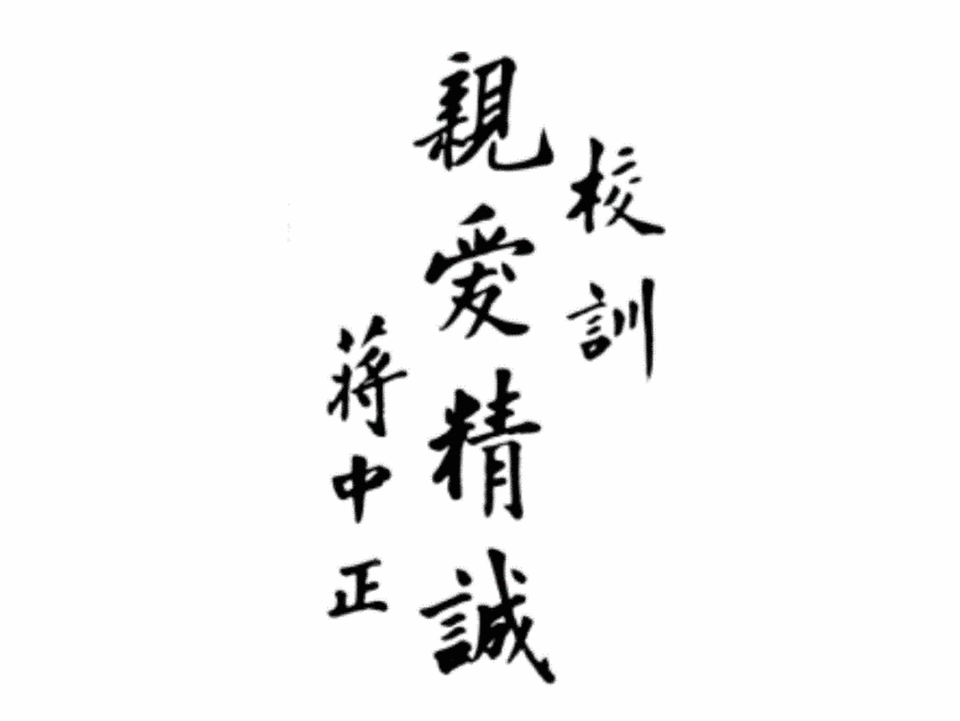 校訓
親愛精誠
蔣中正